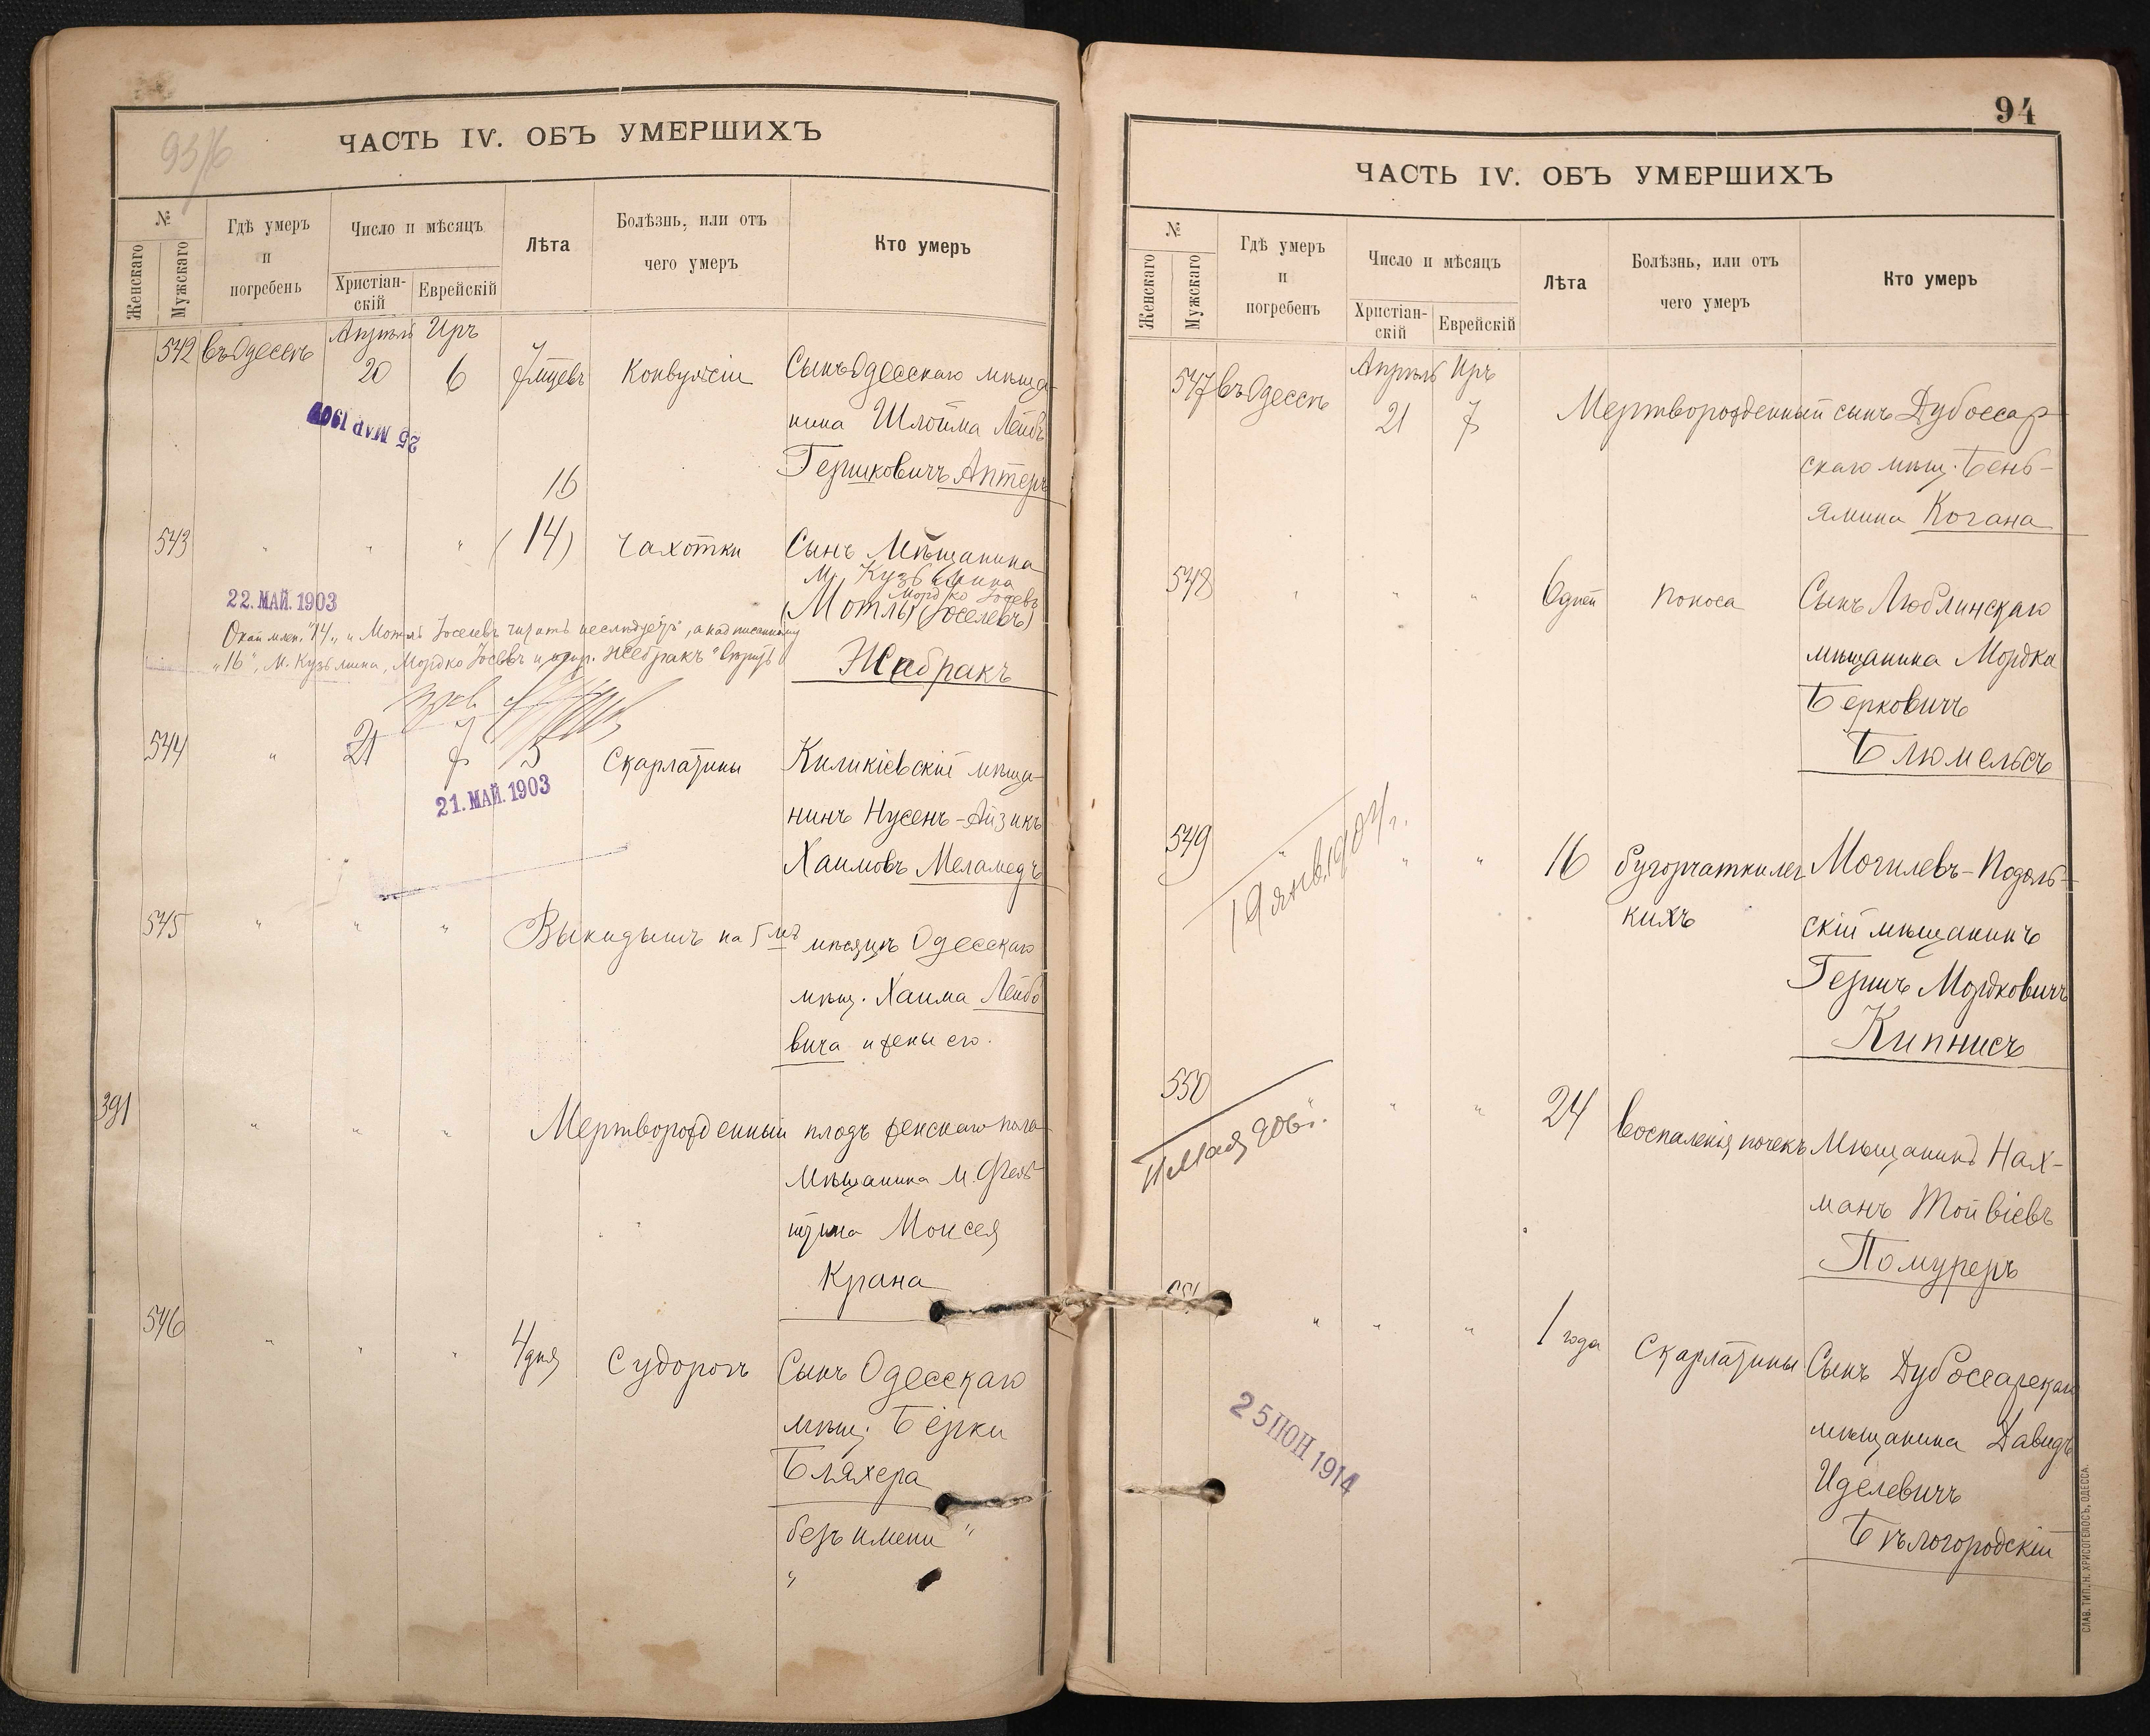 93/б
ЧАСТЬ IV. ОБЪ УМЕРШИХЪ
№
Женскаго
Мужскаго
Гдѣ умеръ
и
погребенъ
Число и мѣсяцъ
Христіан-
скій
Еврейскій
Лѣта
Болѣзнь, или отъ
чего умеръ
Кто умеръ
542 въ Одессѣ Апрѣль 20 Иръ 6 7 мцевъ Конвульсіи Сынъ Одесскаго мѣща-
нина Шлойма Лейбъ
Гершковичъ Аптеръ
25 МАР 1907
16
543 " " " (14) Чахотки Сынъ Мѣщанина
М. Кузьмина
Мордко Іосевъ
(Мотль) (Іоселевъ)
Жебракъ
22. МАЙ. 1903
"14" и Мотль Іоселевъ читать не слѣдуетъ, а надписанному
"16", М. Кузьмина, Мордко Іосевъ и испр. Жебракъ" вѣрить
544 " 21 7 5 Скарлатины Киликіевскій мѣща-
нинъ Нусенъ-Айзикъ
Хаимовъ Меламедъ
21. МАЙ. 1903
545 " " " Выкидышъ на 5мъ мѣсяцѣ Одесскаго
мѣщ. Хаима Лейбо
вича и жены его.
391 " " " Мертворожденный плодъ женскаго пола
Мѣщанина м. Фель
штина Моисея
Крана
546 " " " 4 дня Судорогъ Сынъ Одесскаго
мѣщ. Берки
Бляхера
безъ имени "
"
94
ЧАСТЬ IV. ОБЪ УМЕРШИХЪ
№
Женскаго
Мужскаго
Гдѣ умеръ
и
погребенъ
Число и мѣсяцъ
Христіан-
скій
Еврейскій
Лѣта
Болѣзнь, или отъ
чего умеръ
Кто умеръ
547 въ Одессѣ Апрѣль 21 Иръ 7 Мертворожденный сынъ Дубоссар-
скаго мѣщ. Бень-
ямина Когана
548 " " " 6 дней Поноса Сынъ Люблинскаго
мѣщанина Мордка
Берковичъ
Блюмельсъ
549 " " " 16 бугорчатки лег Могилевъ-Подоль-
кихъ скій мѣщанинъ
Гершъ Мордковичъ
Кипнисъ
19 янв. 1904 г.
550 " " 24 Воспаленія почекъ Мѣщанинъ Нах-
манъ Тойвіевъ
Помуреръ
11 Мая 906 г.
551 " " " 1 года Скарлатины Сынъ Дубоссарскаго
мѣщанина Давидъ
Иделевичъ
Бѣлогородскій
25 ІЮН 1914
СЛАВ. ТИП. Н. ХРИСОГЕЛОСЪ, ОДЕССА.